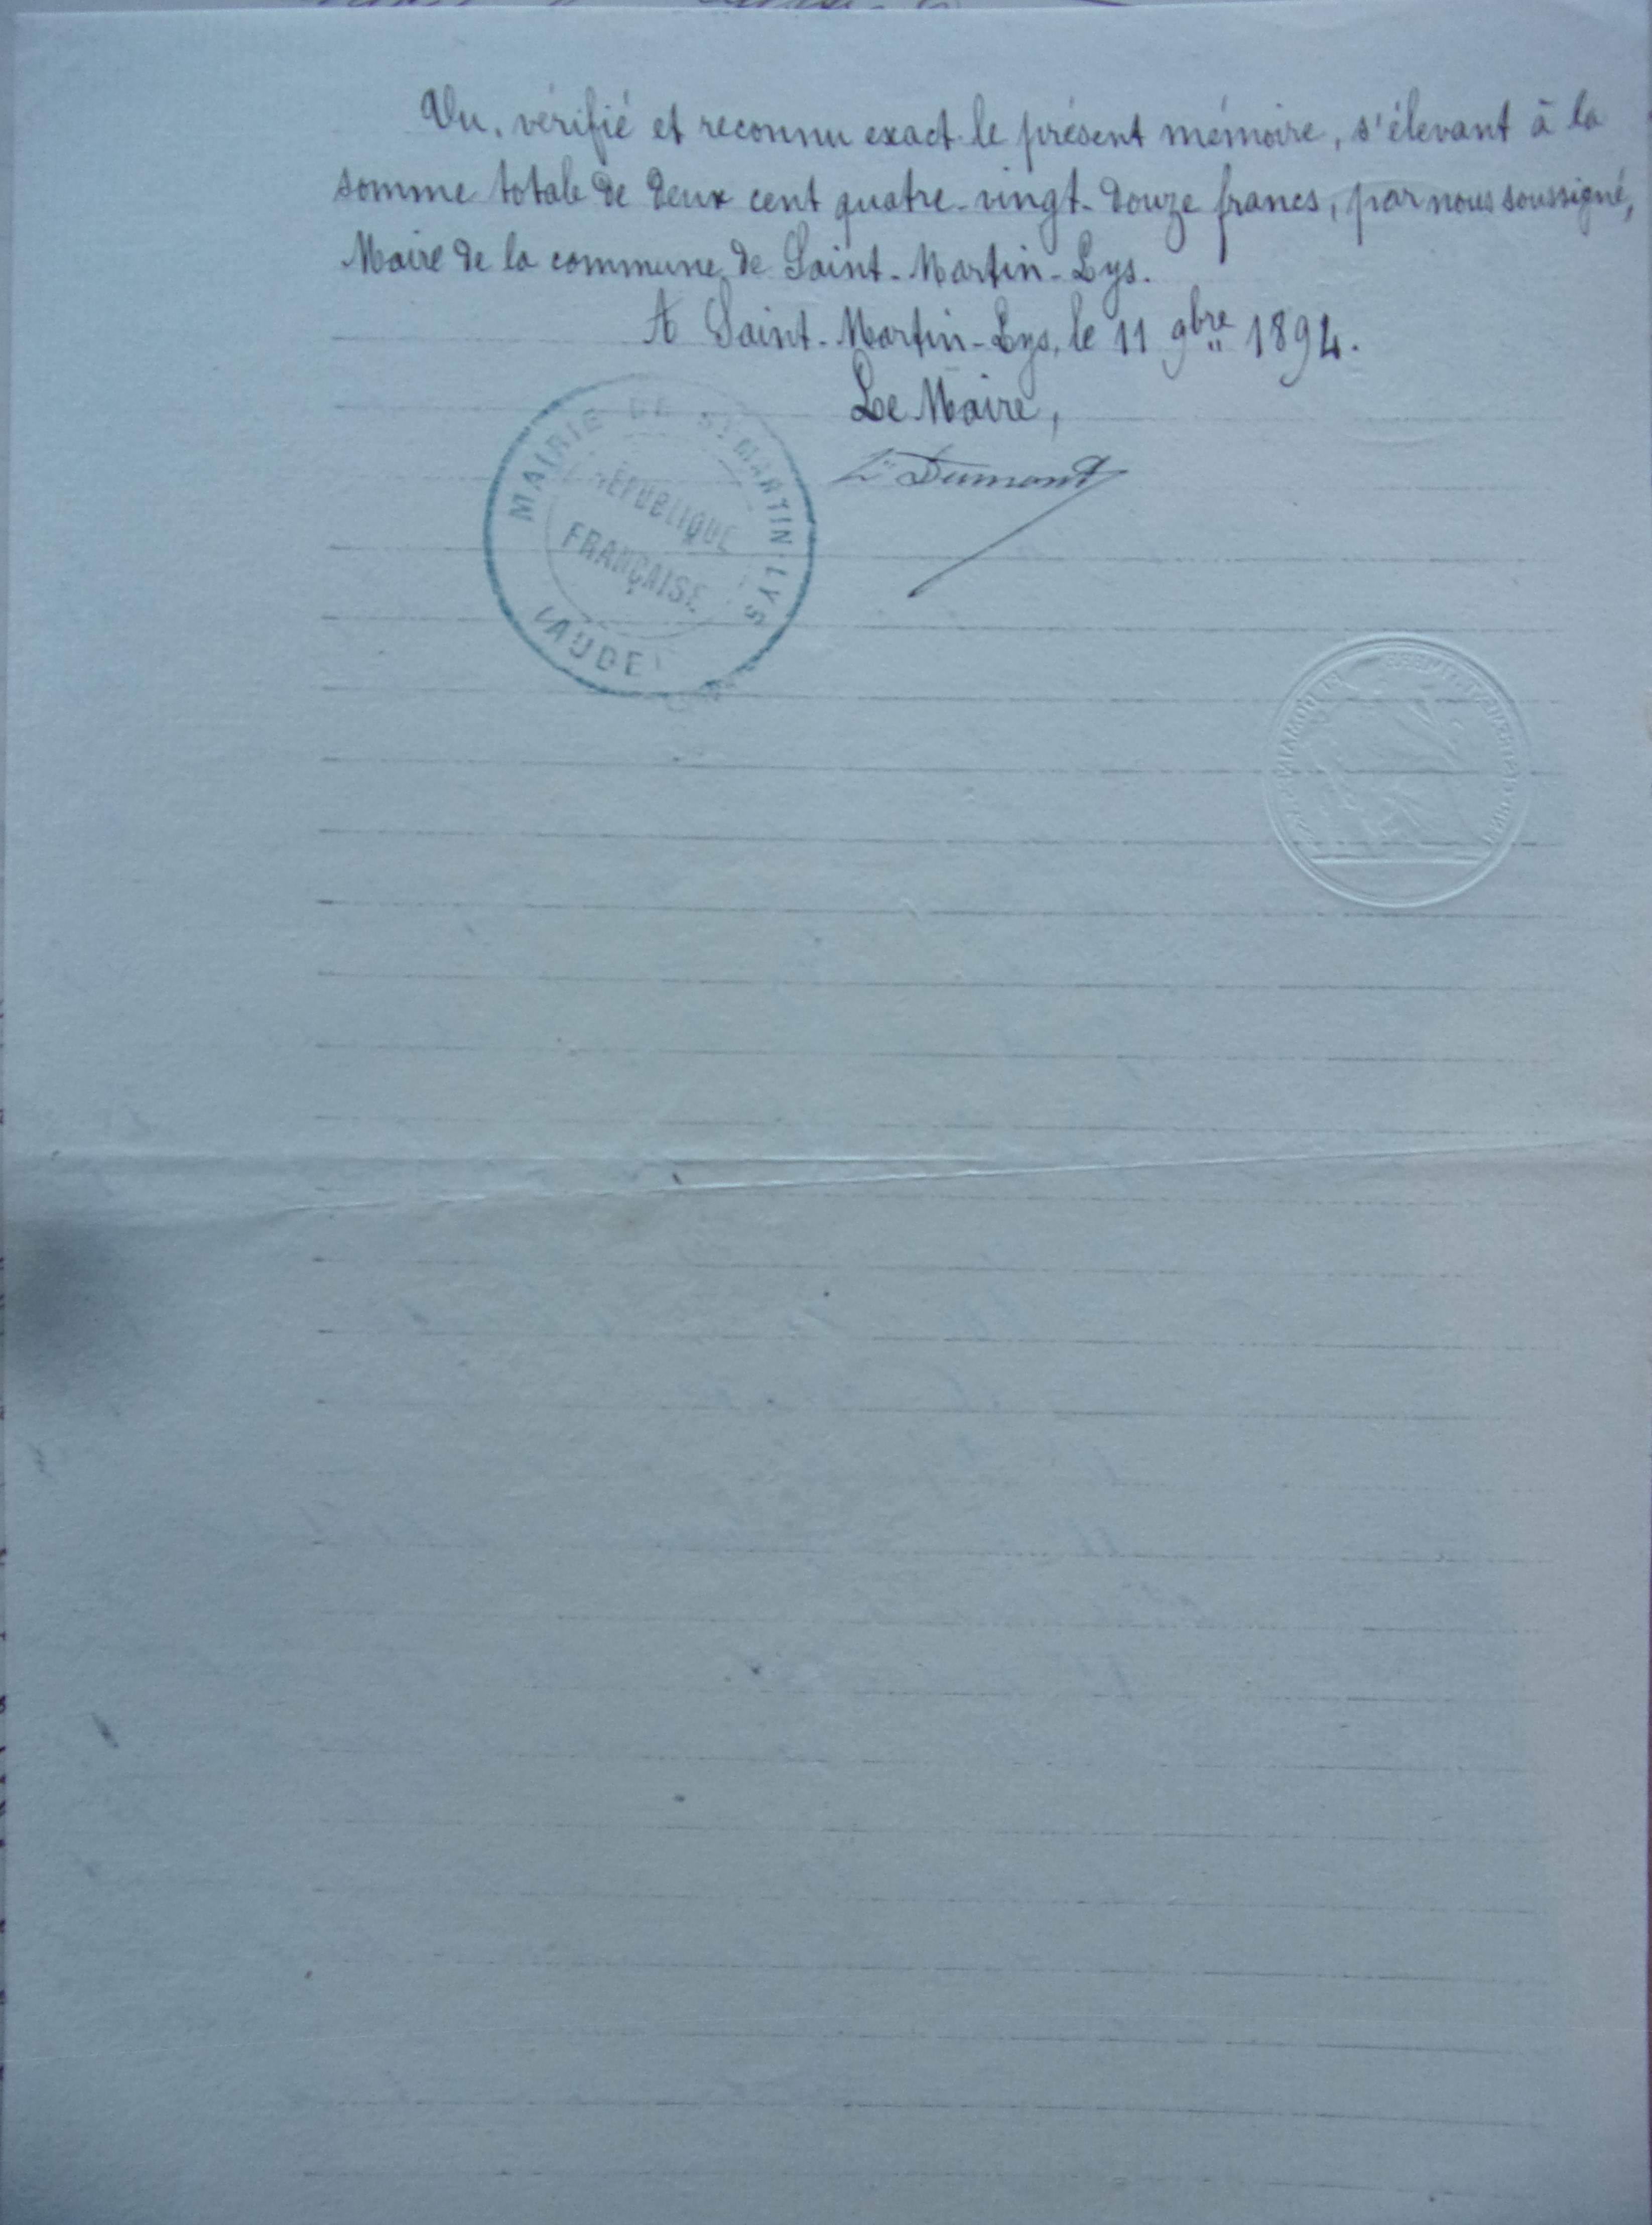 Vu, vérifié et reconnu exact le présent mémoire, s'élevant à la
somme totale de deux cent quatre-vingt-douze francs, par nous soussigné,
Maire de la commune de Saint-Martin-Lys.
A Saint-Martin-Lys, le 11 9bre 1894.
Le Maire,
Dumont
MAIRIE DE ST MARTIN-LYS
RÉPUBLIQUE
FRANÇAISE
(AUDE)